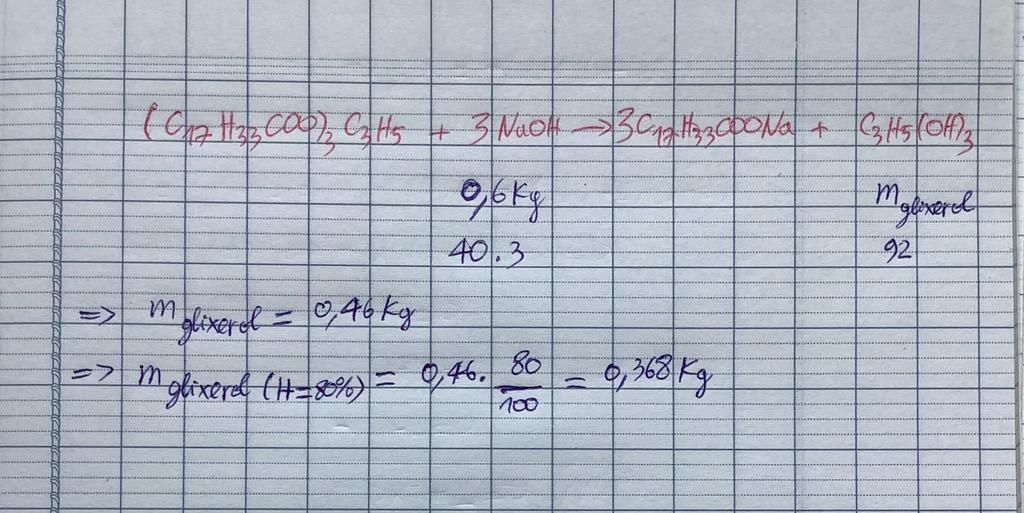 (C₁₇H₃₃COO)₃C₃H₅ + 3NaOH → 3C₁₇H₃₃COONa + C₃H₅(OH)₃
0,6 Kg m glixerol
40.3 92
=> m glixerol = 0,46 Kg
=> m glixerol (H=80%) = 0,46. 80/100 = 0,368 Kg